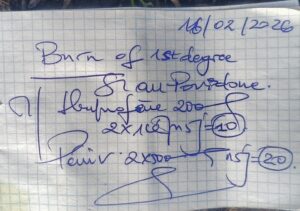 16/02/2026
Burn of 1st degree
Povidone.
Ibuprofene 200
2x1 nsj = 10
Peni V. 2x500 nsj = 20